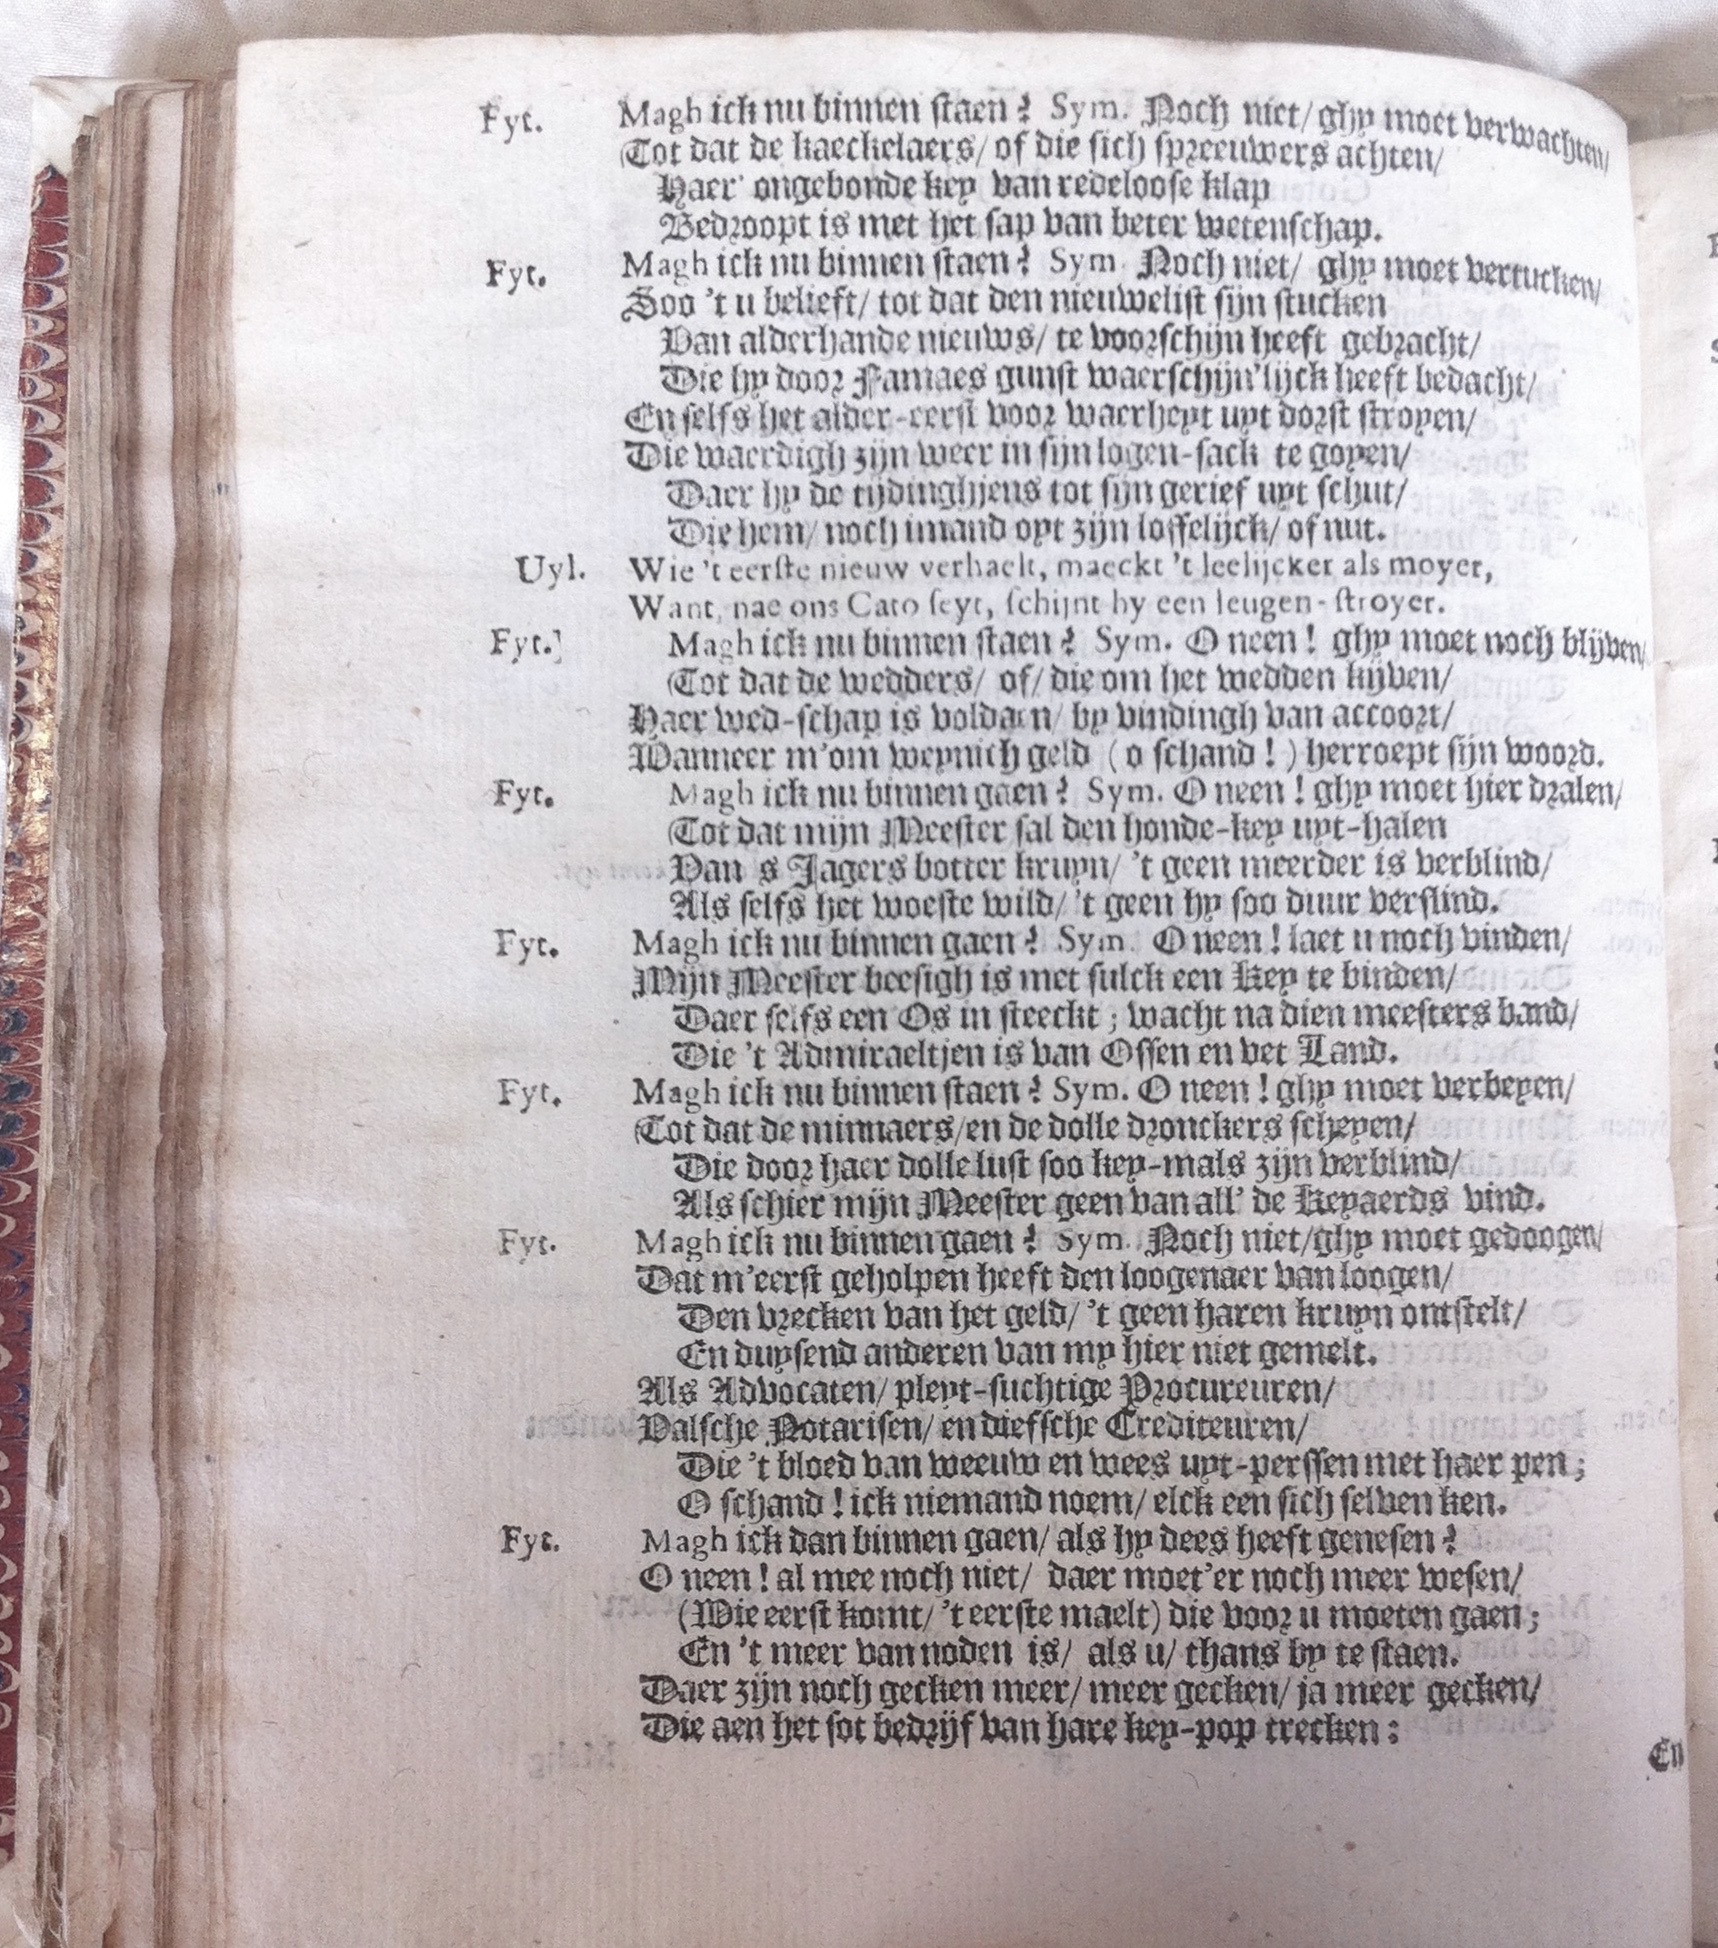 Fyt. Magh ick nu binnen staen? Sym. Noch niet/ ghy moet verwachten/
Tot dat de kaeckelaers/ of die sich spreeuwers achten/
Haer' ongebonde key van redeloose klap
Bedroopt is met het sap van beter wetenschap.
Fyt. Magh ick nu binnen staen? Sym. Noch niet/ ghy moet vertucken/
Soo 't u belieft/ tot dat den nieuwelist sijn stucken
Van alderhande nieuws/ te voorschijn heeft gebracht/
Die hy door Famaes gunst waerschijn'lijck heeft bedacht/
En selfs het alder-eerst voor waerheyt uyt dorst stroyen/
Die waerdigh zijn weer in sijn logen-sack te goyen/
Daer hy de tijdinghjens tot sijn gerief uyt schut/
Die hem/ noch imand oyt zijn loffelijck/ of nut.
Uyl. Wie 't eerste nieuw verhaelt, maeckt 't leelijcker als moyer,
Want, nae ons Cato seyt, schijnt hy een leugen-stroyer.
Fyt.] Magh ick nu binnen staen? Sym. O neen! ghy moet noch blijven/
Tot dat de wedders/ of/ die om het wedden kijven/
Haer wed-schap is voldaen/ by vindingh van accoort/
Wanneer m'om weynich geld (o schand!) herroept sijn woord.
Fyt. Magh ick nu binnen gaen? Sym. O neen! ghy moet hier dralen/
Tot dat mijn Meester sal den honde-key uyt-halen
Van s Jagers botter kruyn/ 't geen meerder is verblind/
Als selfs het woeste wild/ 't geen hy soo duur verslind.
Fyt. Magh ick nu binnen gaen? Sym. O neen! laet u noch vinden/
Mijn Meester beesigh is met sulck een Key te binden/
Daer selfs een Os in steeckt; wacht na dien meesters band/
Die 't Admiraeltjen is van Ossen en vet Land.
Fyt. Magh ick nu binnen staen? Sym. O neen! ghy moet verbeyen/
Tot dat de minnaers/ en de dolle dronckers scheyen/
Die door haer dolle lust soo key-mals zijn verblind/
Als schier mijn Meester geen van all' de Keyaerds vind.
Fyt. Magh ick nu binnen gaen? Sym. Noch niet/ ghy moet gedoogen/
Dat m'eerst geholpen heeft den loogenaer van loogen/
Den vrecken van het geld/ 't geen haren kruyn ontstelt/
En duysend anderen van my hier niet gemelt.
Als Advocaten/ pleyt-suchtige Procureuren/
Valsche Notarisen/ en diefsche Crediteuren/
Die 't bloed van weeuw en wees uyt-perssen met haer pen;
O schand! ick niemand noem/ elck een sich selven ken.
Fyt. Magh ick dan binnen gaen/ als hy dees heeft genesen?
O neen! al mee noch niet/ daer moet'er noch meer wesen/
(Wie eerst komt/ 't eerste maelt) die voor u moeten gaen;
En 't meer van noden is/ als u/ thans by te staen.
Daer zijn noch gecken meer/ meer gecken/ ja meer gecken/
Die aen het sot bedrijf van hare key-pop trecken:
En